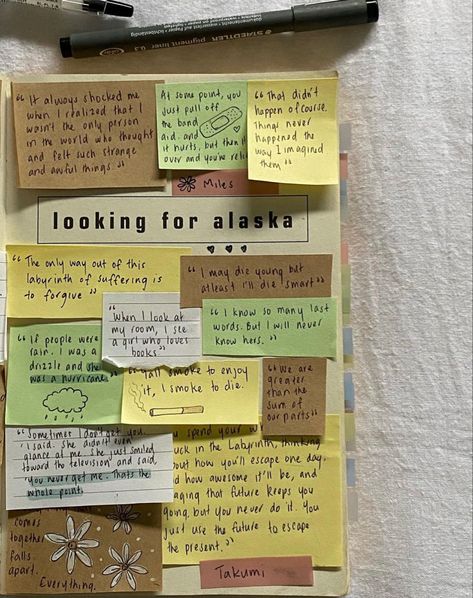 STAEDTLER pigment liner 0.3
"It always shocked me
when I realized that I
wasn't the only person
in the world who thought
and felt such strange
and awful things"
At some point, you
just pull off
the band
aid. and
it hurts, but then it
over and you're reli
"That didn't
happen ofcourse.
Things never
happened the
way I imagined
them"
Miles
looking for alaska
"The only way out of this
labyrinth of suffering is
to forgive"
"I may die young but
atleast i'll die smart"
"When I look at
my room, I see
a girl who loves
books"
"I know so many last
words. But I will never
know hers.
"If people were
rain. I was a
drizzle and she
was a hurricane
Yall smoke to enjoy
it, I smoke to die.
"We are
greater
than the
sum of
our parts"
"Sometimes I don't get you.'
I said. She didn't even
glance at me. She just smiled
toward the television and said,
'You never get me. Thats the
whole point.
spend your
uck in the Labyrinth, thinking
out how you'll escape one day.
d how awesome it'll be, and
aging that future keeps you
going, but you never do it. You
just use the future to escape
the present."
comes
together
falls
apart.
Everything.
Takumi